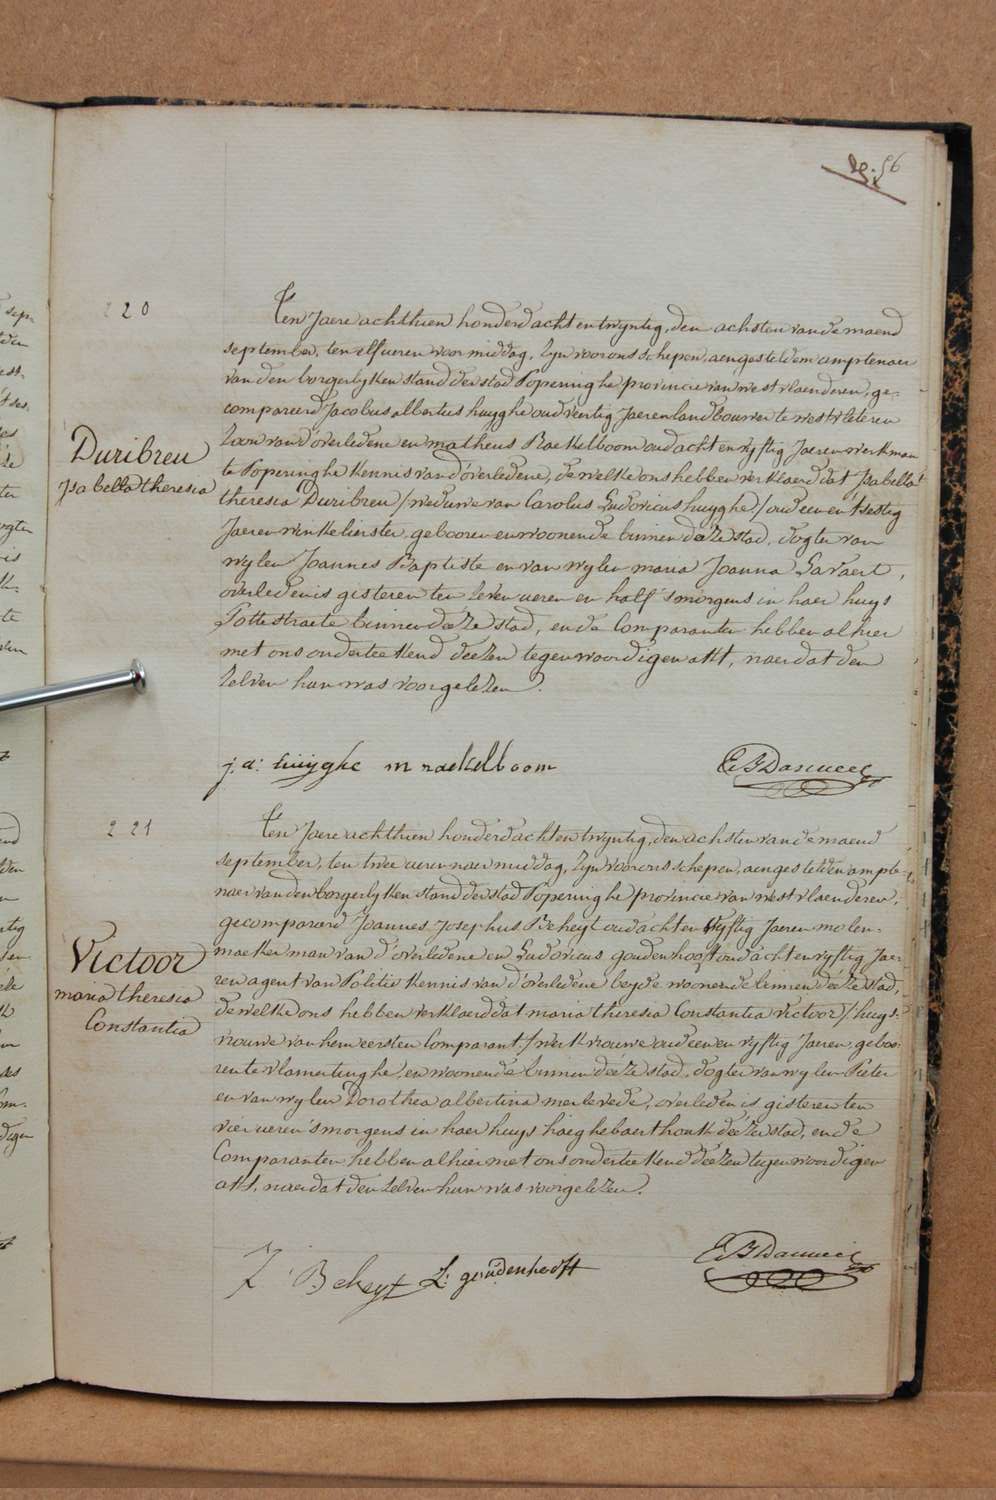 56
220
Ten Jaere achthien honderd acht en twyntig, den achsten van de maend
september, ten elf ueren voor middag, Zyn voor ons schepen, aengestelden amptenaer
van den borgerlyken stand der stad Poperinghe provincie van westvlaenderen, ge-
compareerd Jacobus albertus huyghe oud veertig Jaeren landbouwer te westvleteren
Zoon van d'overledene en matheus Raekelboom oud acht en vyftig Jaeren werkman
te Poperinghe Kennis van d'overledene, de welke ons hebben verklaerd dat Isabella
theresia Duribreu /weduwe van Carolus Ludovicus huyghe/ oud een en tsestig
Jaeren winkelierster, gebooren en woonende binnen deéze stad, dogter van
wylen Joannes Baptiste en van wylen maria Joanna Lavaert,
overleden is gisteren ten zeven ueren en half 's morgens in haer huys
Pottestraete binnen deéze stad, en de Comparanten hebben alhier
met ons onderteekend deézen tegenwoordigen akt, naer dat den
Zelven hun was voorgelezen.
Duribreu
Isabella theresia
j: a: huyghe m raekelboom
221
Ten Jaere achthien honderd acht en twyntig, den achsten van de maend
september, ten twee ueren naer middag, Zyn voor ons schepen, aengestelden ampte-
naer van den borgerlyken stand der stad Poperinghe provincie van westvlaenderen,
gecompareerd Joannes Josephus Beheyt oud acht en vyftig Jaeren molen-
maeker man van d'overledene en Ludovicus goudenhooft oud acht en vyftig Jae-
ren agent van Politie Kennis van d'overledene beyde woonende binnen deéze stad,
de welke ons hebben verklaerd dat maria theresia Constantia Victoor /huys-
vrouwe van hem eersten Comparant/ werkvrouwe oud een en vyftig Jaeren, geboo-
ren te vlamertinghe, en woonende binnen deéze stad, dogter van wylen Pieter
en van wylen Dorothea albertina merlevede, overleden is gisteren ten
vier ueren 's morgens in haer huys haeghebaerthoek deéze stad, en de
Comparanten hebben alhier met ons onderteekend deézen tegenwoordigen
akt, naer dat den Zelven hun was voorgelezen.
Victoor
maria theresia
Constantia
Beheyt L: goudenhooft